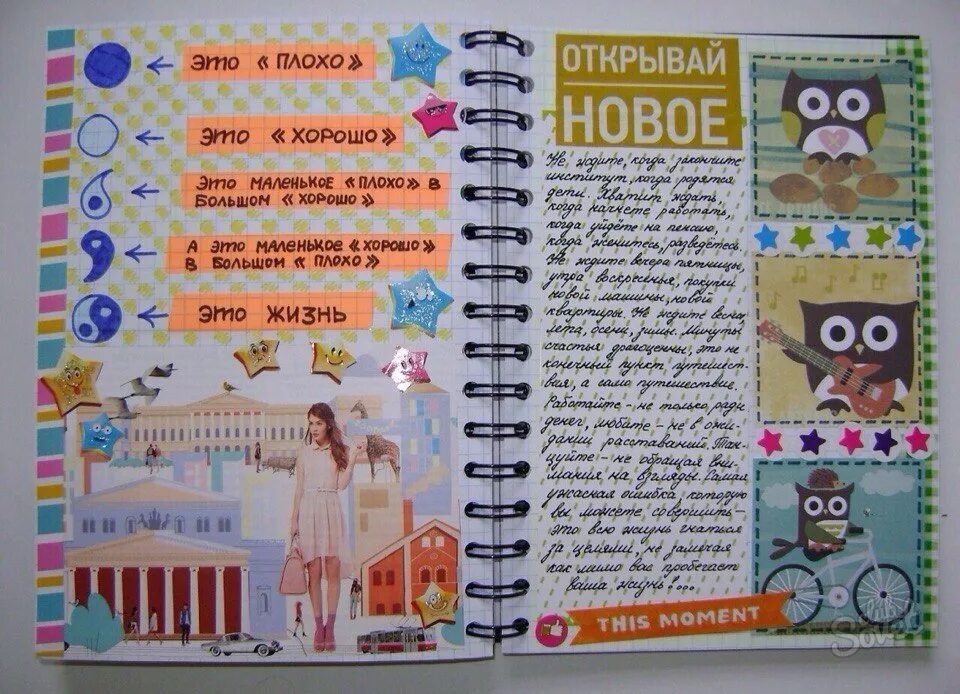 Это «ПЛОХО»
Это «ХОРОШО»
Это маленькое «плохо» в
большом «хорошо»
А это маленькое «хорошо»
в большом «плохо»
Это жизнь
ОТКРЫВАЙ
НОВОЕ
Не ждите, когда закончите
институт, когда родятся
дети. Хватит ждать,
когда начнете работать,
когда уйдёте на пенсию,
когда женитесь, разведётесь.
Не ждите вечера пятницы,
утра воскресенья, покупки
новой машины, новой
квартиры. Не ждите весны,
лета, осени, зимы. Минуты
счастья драгоценны, это не
конечный пункт путешест-
вия, а само путешествие.
Работайте – не только ради
денег, любите – не в ожи-
дании расставаний. Тан-
цуйте – не обращая вни-
мания на взгляды. Самая
ужасная ошибка, которую
вы можете совершить –
это всю жизнь гнаться
за целями, не замечая
как мимо вас пробегает
ваша жизнь!...
THIS MOMENT